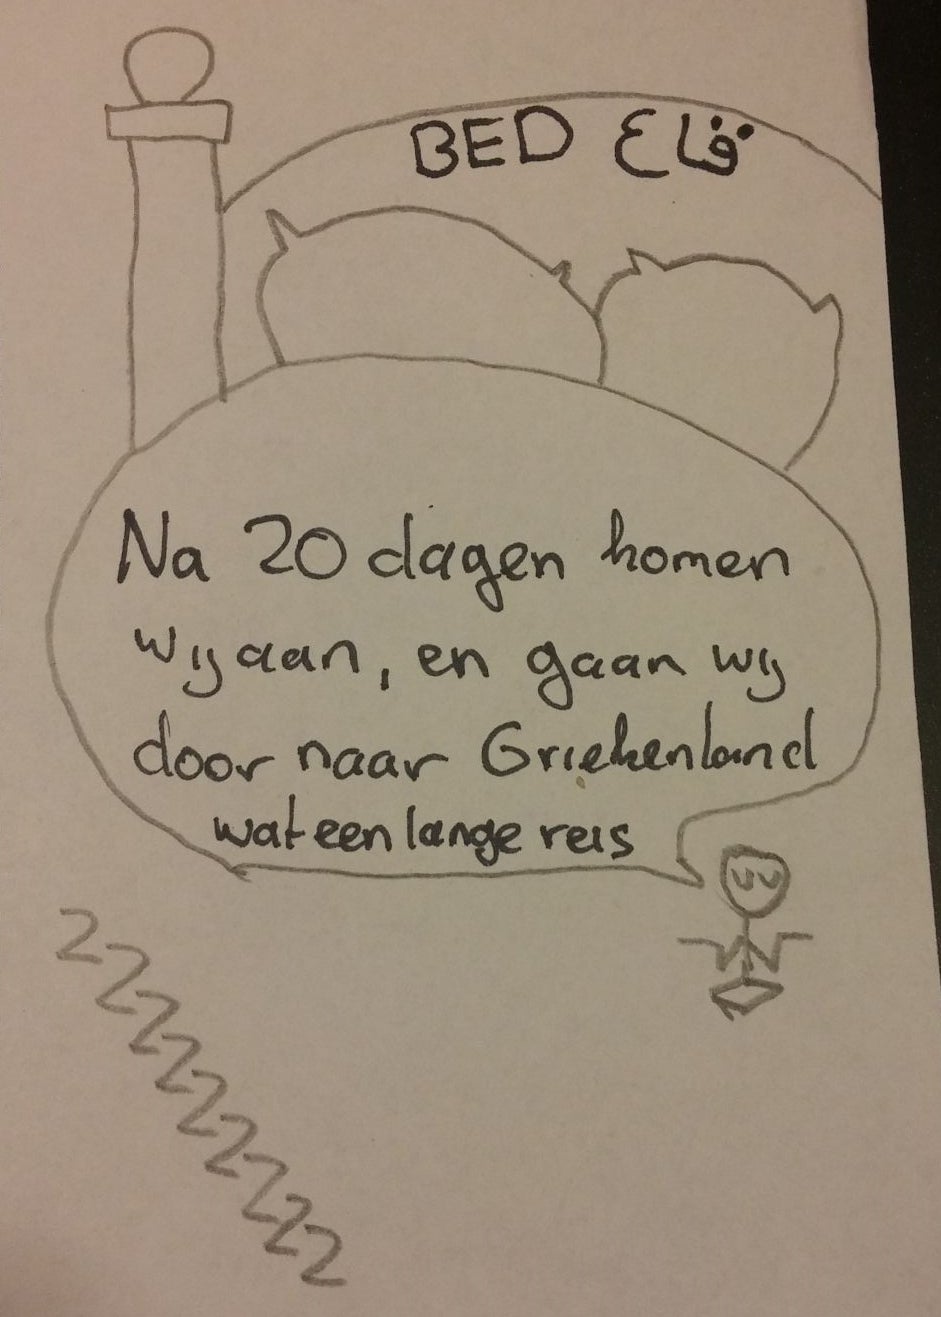 BED قاع
Na 20 dagen komen
wij aan, en gaan wij
door naar Griekenland
wat een lange reis
ZZZZZZZZZ